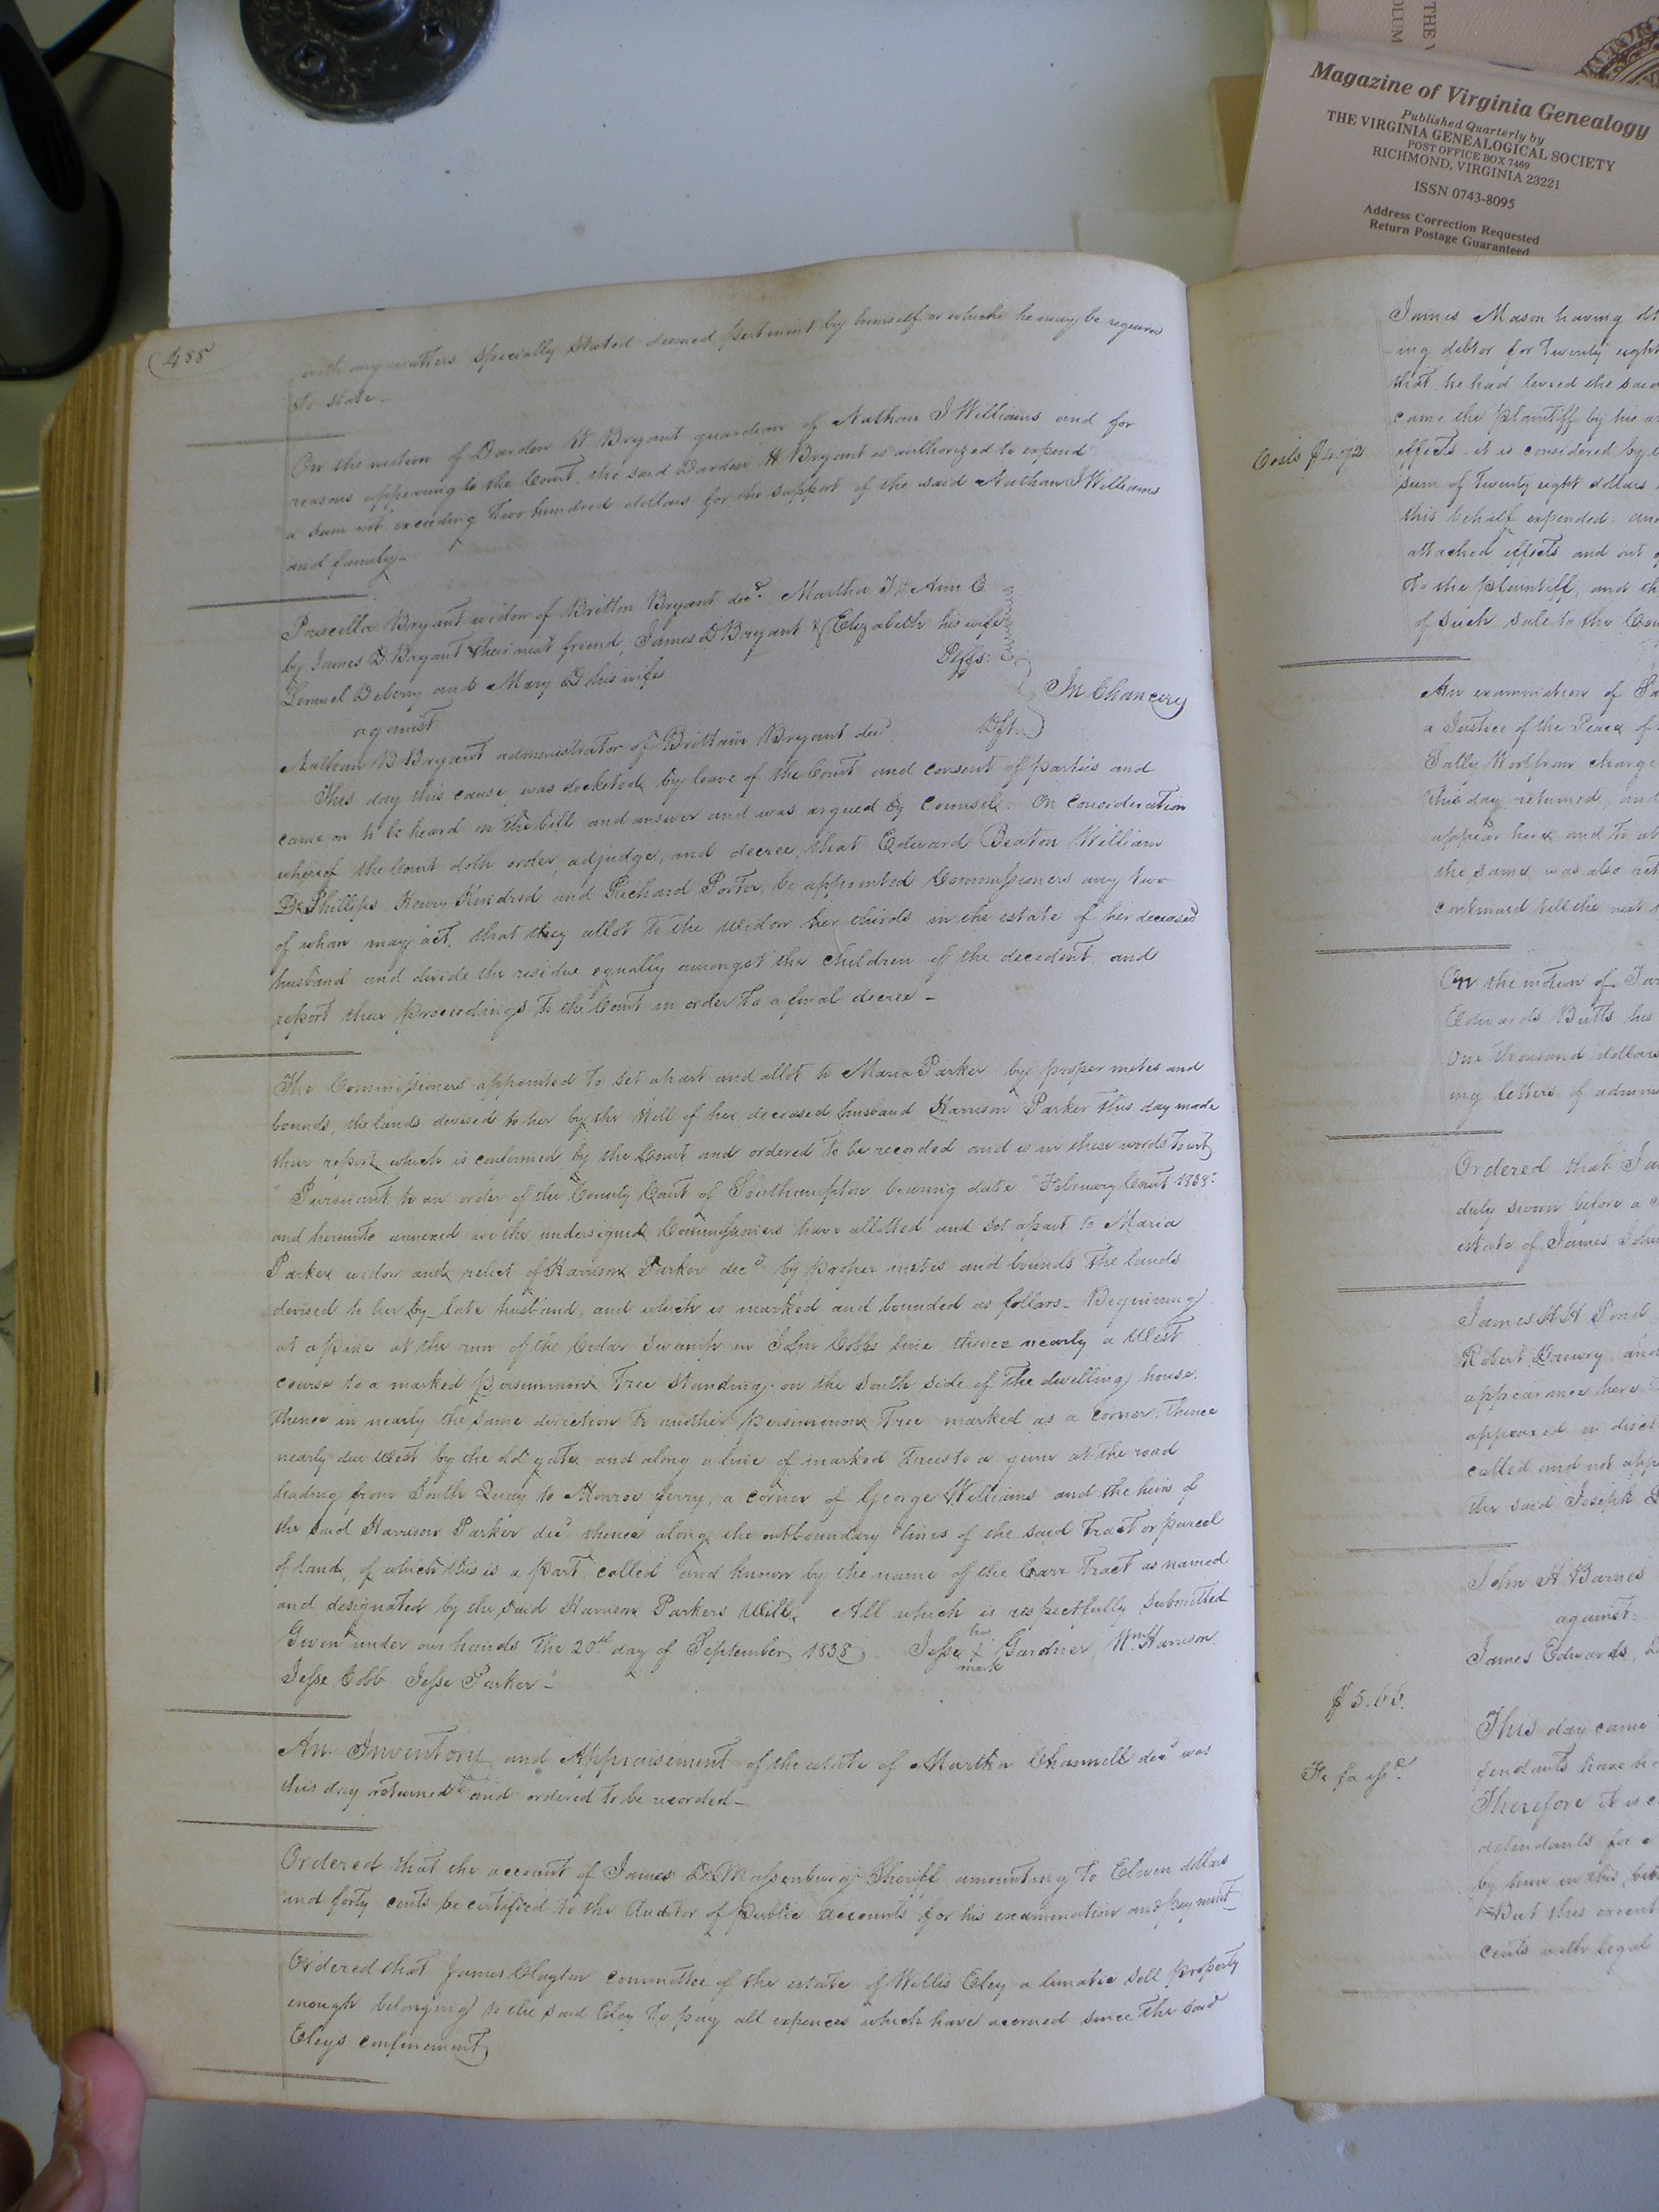 THE V
OLUM
Magazine of Virginia Genealogy
Published Quarterly by
THE VIRGINIA GENEALOGICAL SOCIETY
POST OFFICE BOX 7469
RICHMOND, VIRGINIA 23221
ISSN 0743-8095
Address Correction Requested
Return Postage Guaranteed
488
with any matters specially stated deemed pertinent by himself or which he may be required
to state
On the motion of Darden H Bryant guardian of Nathan J Williams and for
reasons appearing to the Court, the said Darden H Bryant is authorized to expend
a sum not exceeding two hundred dollars for the support of the said Nathan J Williams
and family-
Priscilla Bryant widow of Britton Bryant decd. Martha & Ann E
by James D Bryant their next friend, James D Bryant & Elizabeth his wife
Lemuel Deberry and Mary D his wife Plffs:
against In Chancery
Nathan B Bryant administrator of Brittain Bryant decd Dft.
This day this cause was docketed by leave of the Court and consent of parties and
came on to be heard on the bill and answer and was argued by Counsel. On consideration
whereof the Court doth order, adjudge, and decree, that Edward Beaton William
D Phillips Henry Kindred and Richard Porter be appointed Commissioners any two
of whom may act, that they allot to the widow her thirds in the estate of her deceased
husband and divide the residue equally amongst the children of the decedent, and
report their proceedings to the Court in order to a final decree -
The Commissioners appointed to set apart and allot to Maria Parker by proper metes and
bounds, the lands devised to her by the Will of her deceased husband Harrison Parker this day made
their report which is confirmed by the Court and ordered to be recorded and is in these words towit
" Pursuant to an order of the County Court of Southampton bearing date "February Court 1838"
and hereunto annexed we the undersigned Commissioners have allotted and set apart to Maria
Parker widow and relict of Harrison Parker decd by proper metes and bounds the lands
devised to her by late husband, and which is marked and bounded as follows- Beginning
at a pine at the run of the Cedar Swamp in John Cobbs line thence nearly a West
course to a marked persimmon Tree standing on the South Side of the dwelling house,
thence in nearly the same direction to another persimmon Tree marked as a corner, thence
nearly due West by the old gate and along a line of marked trees to a gum at the road
leading from South Quay to Monroe ferry, a corner of George Williams and the heirs of
the said Harrison Parker decd. thence along the outboundary lines of the said Tract or parcel
of land, of which this is a part, called and known by the name of the Carr Tract as named
and designated by the said Harrison Parkers Will. All which is respectfully submitted
Given under our hands the 20th day of September 1838. Jesse his X mark Gardner, Wm Harrison
Jesse Cobb Jesse Parker"
An Inventory and Appraisement of the estate of Martha Channell decd was
this day returned and ordered to be recorded-
Ordered that the account of James D Massenburg Sheriff amounting to Eleven dollars
and forty cents be certified to the Auditor of Public accounts for his examination and payment
Ordered that James Clayton committee of the estate of Willis Eley a lunatic sell property
enough belonging to the said Eley to pay all expences which have accrued since the said
Eleys confinement
James Mason having
-ing debtor for Twenty eight
that he had levied the said
came the Plaintiff by his
Costs $4.72 effects it is considered by
sum of Twenty eight dollars
this behalf expended. and
attached effects and out
to the plaintiff, and
of such sale to the Cou
An examination of
a Justice of the Peace of
Sally charge
this day returned, and
appear here and to
the same, was also
continued till the next
On the motion of
Edwards Butts his
One thousand dollars
ing letters of admin
Ordered that Ja
duly sworn before a
estate of James John
James H H Pond
Robert Drewry, and
appearance here
appeared in disch
called and not app
the said Joseph
John H Barnes
against:
James Edwards,
$5.66.
This day came
Fi fa issd. fendants have
Therefore it is c
defendants for
by him in this beh
But this execut
cents with legal